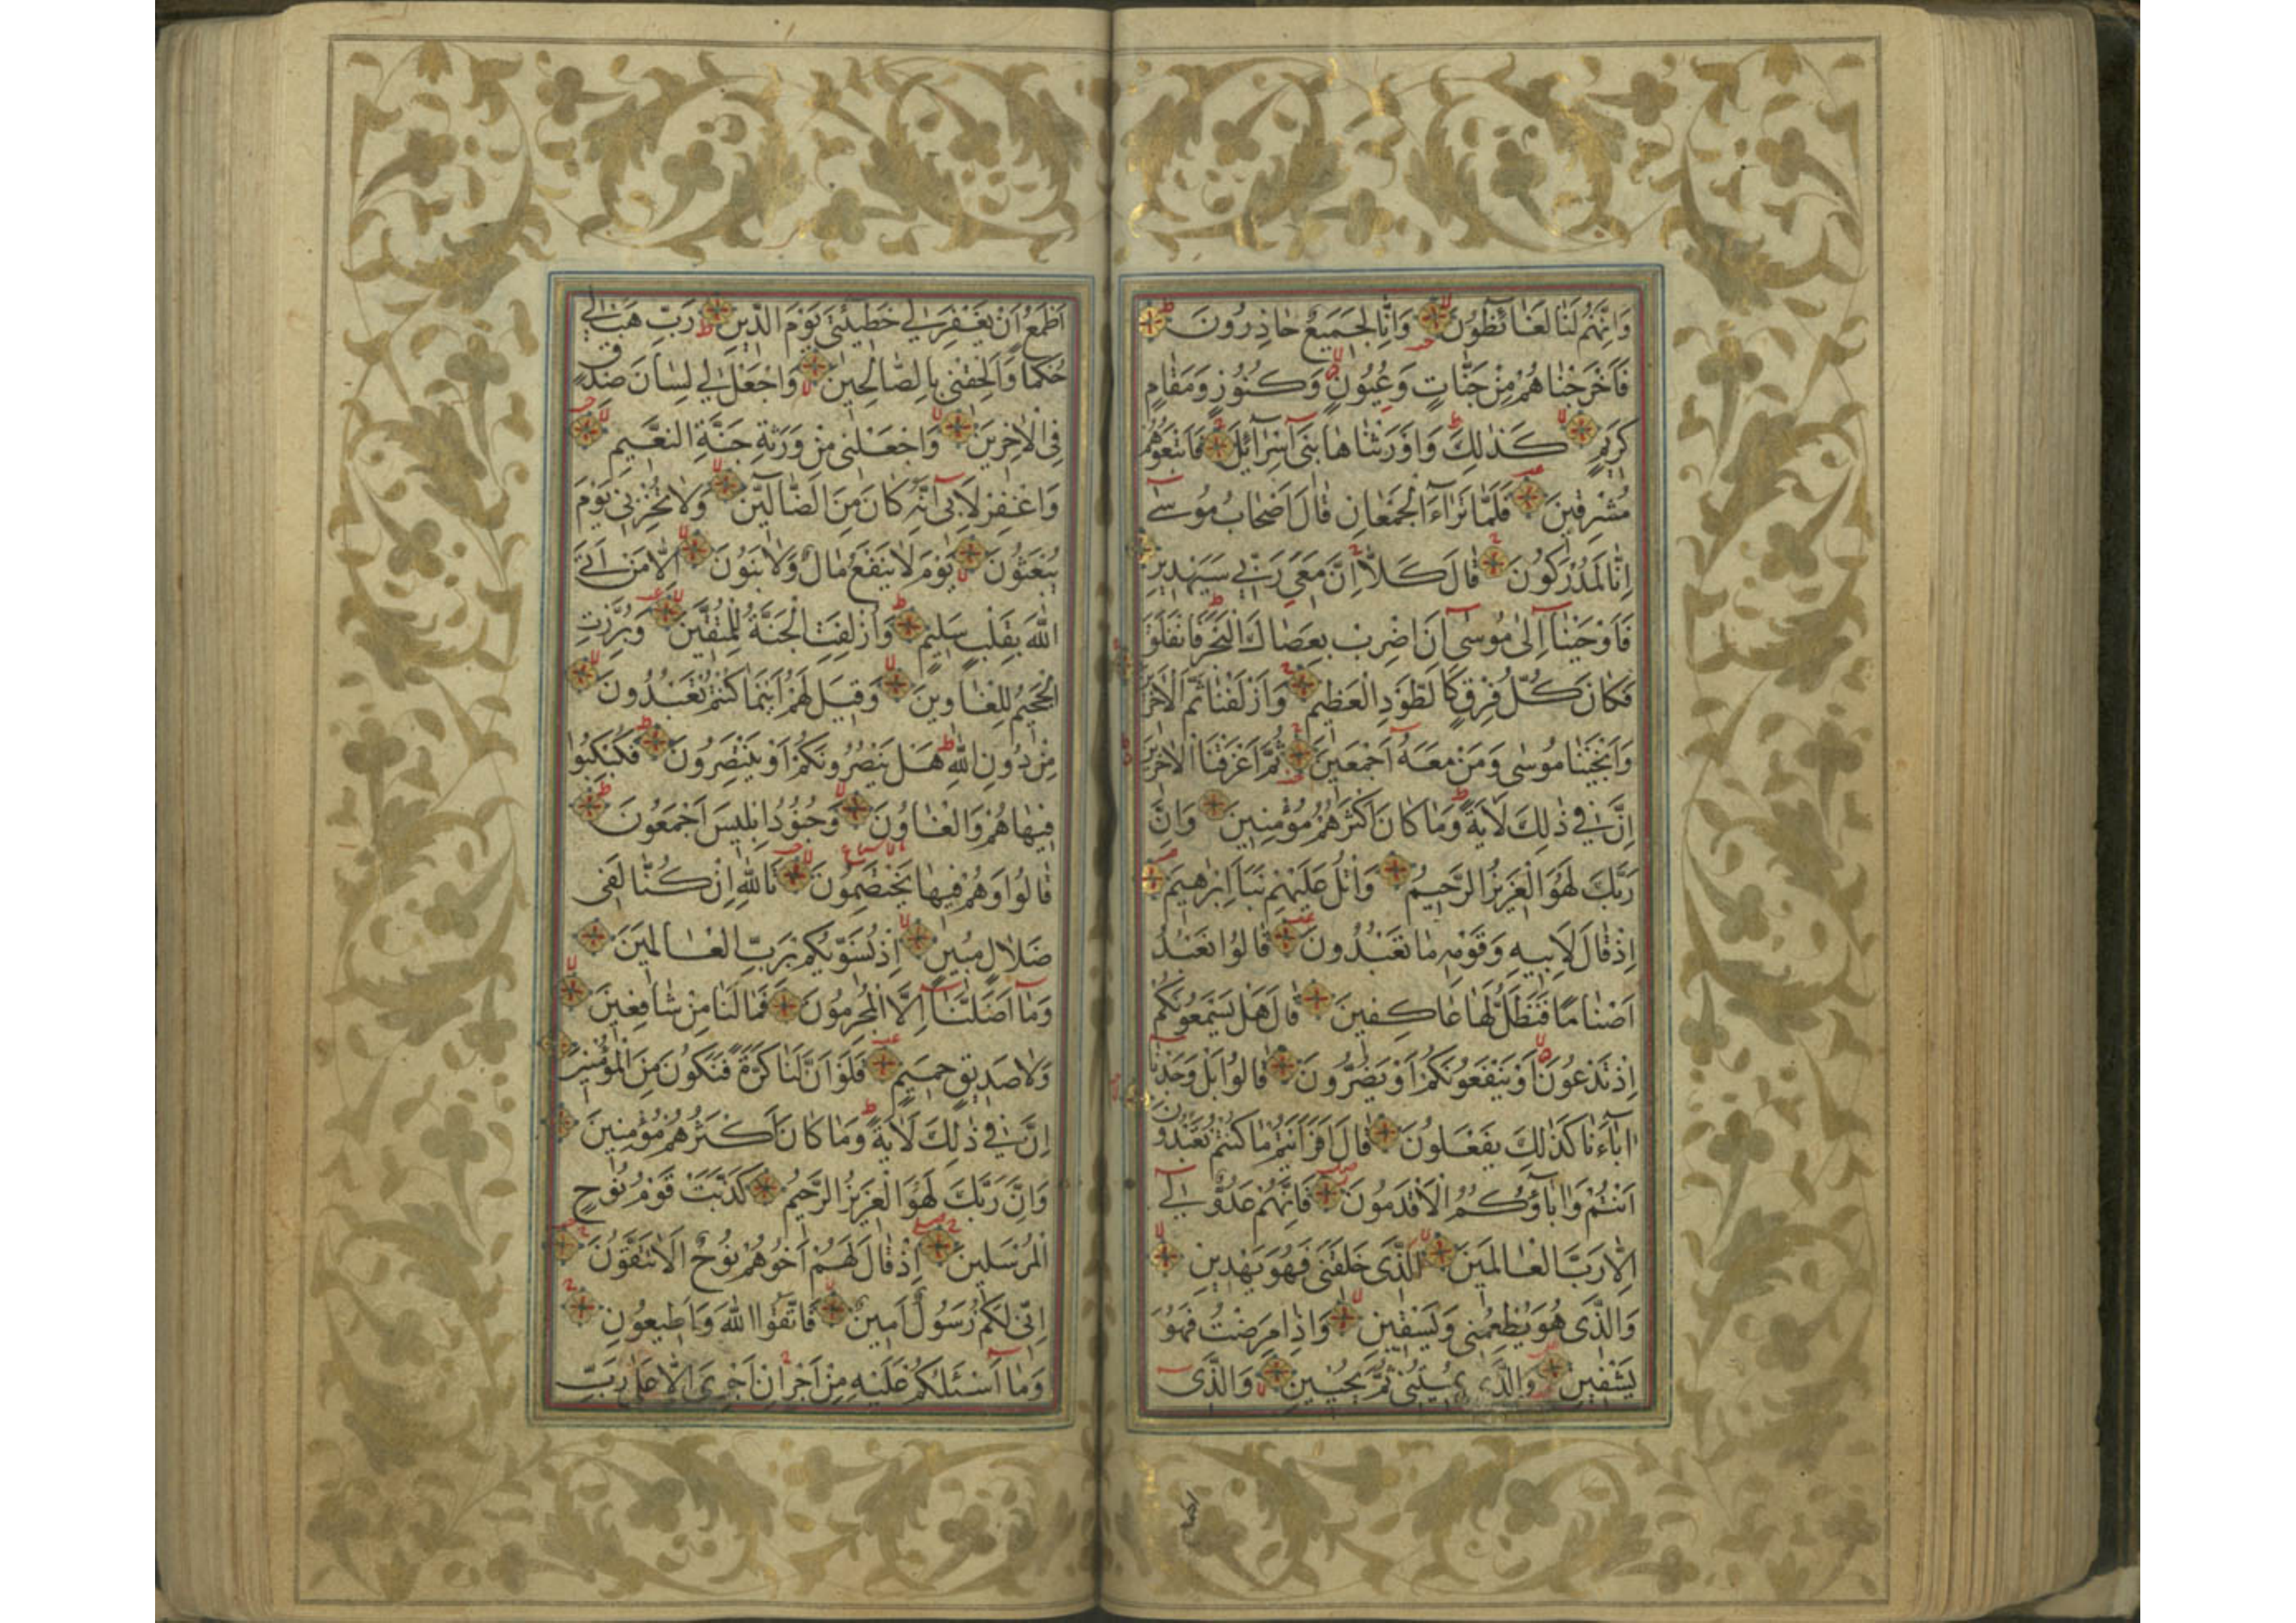 وَاِنَّهُمْ لَنَا لَغَائِظُونَ وَاِنَّا لَجَمِيعٌ حَاذِرُونَ
فَاَخْرَجْنَاهُمْ مِنْ جَنَّاتٍ وَعُيُونٍ وَكُنُوزٍ وَمَقَامٍ
كَرِيمٍ كَذٰلِكَ وَاَوْرَثْنَاهَا بَنِى اِسْرَآئِلَ فَاَتْبَعُوهُمْ
مُشْرِقِينَ فَلَمَّا تَرَآءَ الْجَمْعَانِ قَالَ اَصْحَابُ مُوسٰى
اِنَّا لَمُدْرَكُونَ قَالَ كَلَّا اِنَّ مَعِىَ رَبِّى سَيَهْدِينِ
فَاَوْحَيْنَا اِلٰى مُوسٰى اَنِ اضْرِبْ بِعَصَاكَ الْبَحْرَ فَانْفَلَقَ
فَكَانَ كُلُّ فِرْقٍ كَالطَّوْدِ الْعَظِيمِ وَاَزْلَفْنَا ثَمَّ الْاٰخَرِينَ
وَاَنْجَيْنَا مُوسٰى وَمَنْ مَعَهُ اَجْمَعِينَ ثُمَّ اَغْرَقْنَا الْاٰخَرِينَ
اِنَّ فِى ذٰلِكَ لَاٰيَةً وَمَا كَانَ اَكْثَرُهُمْ مُؤْمِنِينَ وَاِنَّ
رَبَّكَ لَهُوَ الْعَزِيزُ الرَّحِيمُ وَاتْلُ عَلَيْهِمْ نَبَاَ اِبْرٰهِيمَ
اِذْ قَالَ لِاَبِيهِ وَقَوْمِهِ مَا تَعْبُدُونَ قَالُوا نَعْبُدُ
اَصْنَامًا فَنَظَلُّ لَهَا عَاكِفِينَ قَالَ هَلْ يَسْمَعُونَكُمْ
اِذْ تَدْعُونَ اَوْ يَنْفَعُونَكُمْ اَوْ يَضُرُّونَ قَالُوا بَلْ وَجَدْنَا
اٰبَآءَنَا كَذٰلِكَ يَفْعَلُونَ قَالَ اَفَرَاَيْتُمْ مَا كُنْتُمْ تَعْبُدُونَ
اَنْتُمْ وَاٰبَآؤُكُمُ الْاَقْدَمُونَ فَاِنَّهُمْ عَدُوٌّ لِى
اِلَّا رَبَّ الْعَالَمِينَ اَلَّذِى خَلَقَنِى فَهُوَ يَهْدِينِ
وَالَّذِى هُوَ يُطْعِمُنِى وَيَسْقِينِ وَاِذَا مَرِضْتُ فَهُوَ
يَشْفِينِ وَالَّذِى يُمِيتُنِى ثُمَّ يُحْيِينِ وَالَّذِى
اَطْمَعُ اَنْ يَغْفِرَ لِى خَطِيئَتِى يَوْمَ الدِّينِ رَبِّ هَبْ لِى
حُكْمًا وَاَلْحِقْنِى بِالصَّالِحِينَ وَاجْعَلْ لِى لِسَانَ صِدْقٍ
فِى الْاٰخِرِينَ وَاجْعَلْنِى مِنْ وَرَثَةِ جَنَّةِ النَّعِيمِ
وَاغْفِرْ لِاَبِى اِنَّهُ كَانَ مِنَ الضَّآلِّينَ وَلَا تُخْزِنِى يَوْمَ
يُبْعَثُونَ يَوْمَ لَا يَنْفَعُ مَالٌ وَلَا بَنُونَ اِلَّا مَنْ اَتَى
اللّٰهَ بِقَلْبٍ سَلِيمٍ وَاُزْلِفَتِ الْجَنَّةُ لِلْمُتَّقِينَ وَبُرِّزَتِ
الْجَحِيمُ لِلْغَاوِينَ وَقِيلَ لَهُمْ اَيْنَمَا كُنْتُمْ تَعْبُدُونَ
مِنْ دُونِ اللّٰهِ هَلْ يَنْصُرُونَكُمْ اَوْ يَنْتَصِرُونَ فَكُبْكِبُوا
فِيهَا هُمْ وَالْغَاوُنَ وَجُنُودُ اِبْلِيسَ اَجْمَعُونَ
قَالُوا وَهُمْ فِيهَا يَخْتَصِمُونَ تَاللّٰهِ اِنْ كُنَّا لَفِى
ضَلَالٍ مُبِينٍ اِذْ نُسَوِّيكُمْ بِرَبِّ الْعَالَمِينَ
وَمَآ اَضَلَّنَآ اِلَّا الْمُجْرِمُونَ فَمَا لَنَا مِنْ شَافِعِينَ
وَلَا صَدِيقٍ حَمِيمٍ فَلَوْ اَنَّ لَنَا كَرَّةً فَنَكُونَ مِنَ الْمُؤْمِنِينَ
اِنَّ فِى ذٰلِكَ لَاٰيَةً وَمَا كَانَ اَكْثَرُهُمْ مُؤْمِنِينَ
وَاِنَّ رَبَّكَ لَهُوَ الْعَزِيزُ الرَّحِيمُ كَذَّبَتْ قَوْمُ نُوحٍ
الْمُرْسَلِينَ اِذْ قَالَ لَهُمْ اَخُوهُمْ نُوحٌ اَلَا تَتَّقُونَ
اِنِّى لَكُمْ رَسُولٌ اَمِينٌ فَاتَّقُوا اللّٰهَ وَاَطِيعُونِ
وَمَآ اَسْئَلُكُمْ عَلَيْهِ مِنْ اَجْرٍ اِنْ اَجْرِىَ اِلَّا عَلٰى رَبِّ